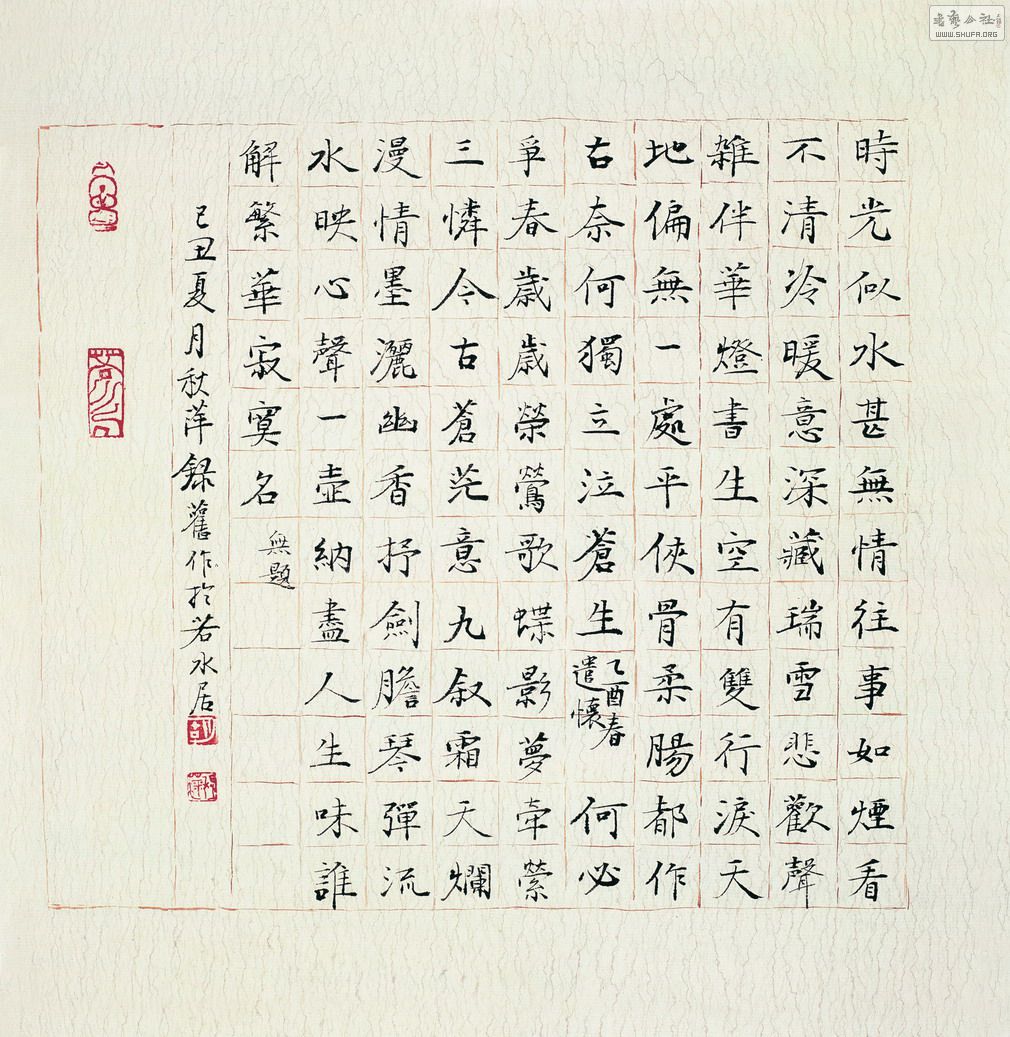 時光似水甚無情往事如煙看
不清冷暖意深藏瑞雪悲歡聲
雜伴華燈書生空有雙行淚天
地偏無一處平俠骨柔腸都作
古奈何獨立泣蒼生
乙酉春
遣懷
何必
爭春歲歲榮鶯歌蝶影夢牽縈
三憐今古蒼茫意九叙霜天爛
漫情墨灑幽香抒劍膽琴彈流
水映心聲一壺納盡人生味誰
解繁華寂寞名
無題
己丑夏月秋萍錄舊作於若水居
書藝公社
WWW.SHUFA.ORG